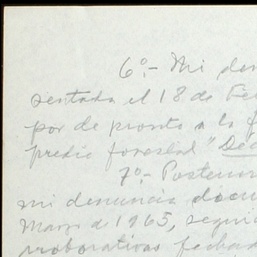 6º.- Mi den
sentada el 18 de Fe
por de pronto a la
predio forestal "De
7º.- Posterior
mi denuncia docu
Marzo de 1965, segui
roborativas fechad